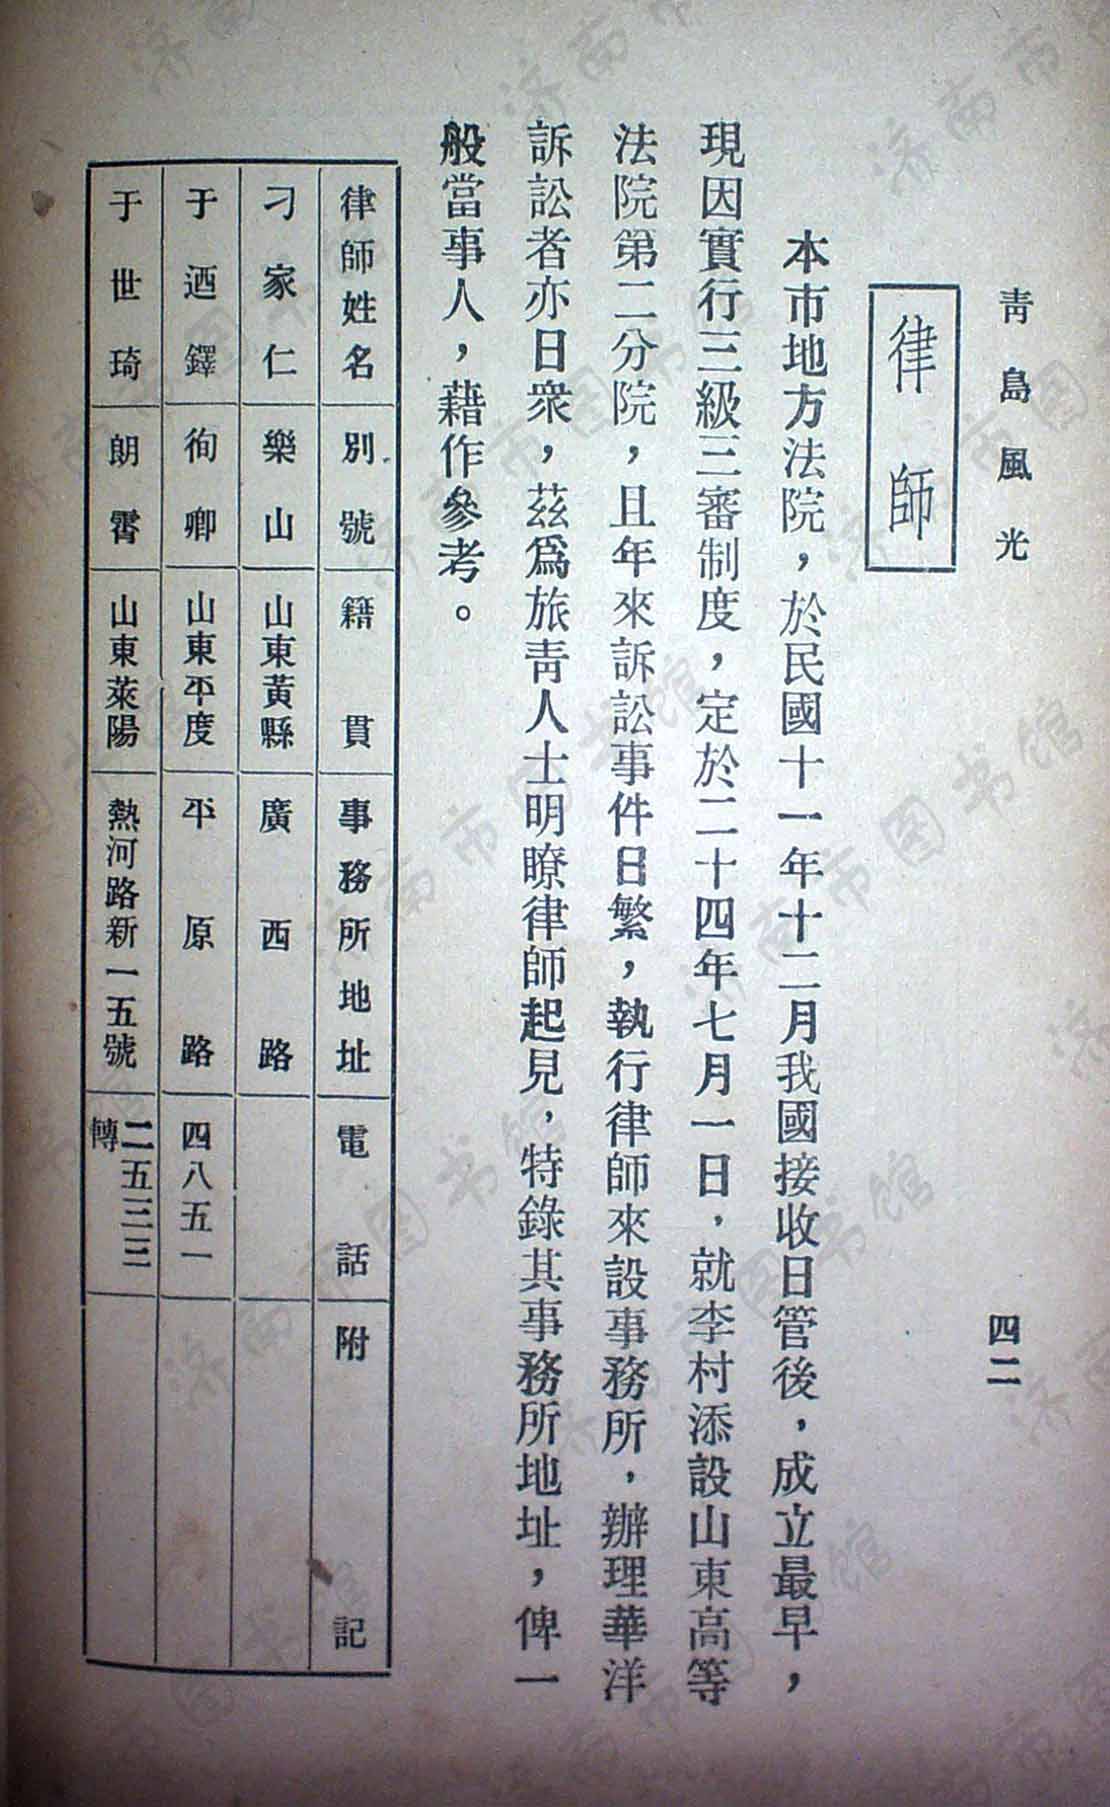 青島風光
四二
律師
本市地方法院，於民國十一年十二月我國接收日管後，成立最早，
現因實行三級三審制度，定於二十四年七月一日，就李村添設山東高等
法院第二分院，且年來訴訟事件日繁，執行律師來設事務所，辦理華洋
訴訟者亦日衆，茲爲旅青人士明瞭律師起見，特錄其事務所地址，俾一
般當事人，藉作參考。
律師姓名 別號 籍貫 事務所地址 電話 附記
刁家仁 樂山 山東黃縣 廣西路
于迺鐸 徇卿 山東平度 平原路 四八五一
于世琦 朗霄 山東萊陽 熱河路新一五號 二五三三轉
济南市图书馆